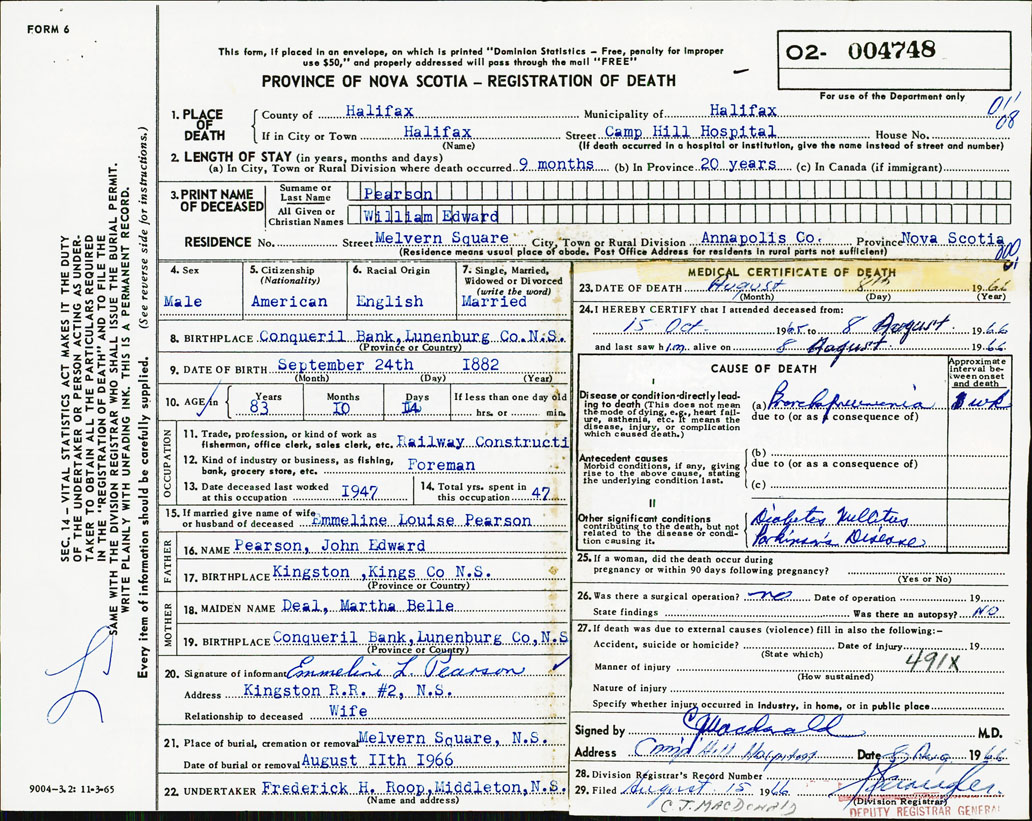 FORM 6
This form, if placed in an envelope, on which is printed "Dominion Statistics – Free, penalty for improper
use $50," and properly addressed will pass through the mail "FREE"
PROVINCE OF NOVA SCOTIA – REGISTRATION OF DEATH
02- 004748
For use of the Department only
1. PLACE OF DEATH
County of Halifax Municipality of Halifax
If in City or Town Halifax Street Camp Hill Hospital House No.
(Name) (If death occurred in a hospital or institution, give the name instead of street and number)
2. LENGTH OF STAY (in years, months and days)
(a) In City, Town or Rural Division where death occurred 9 months (b) In Province 20 years (c) In Canada (if immigrant)
3. PRINT NAME OF DECEASED
Surname or Last Name Pearson
All Given or Christian Names William Edward
RESIDENCE No. Street Melvern Square City, Town or Rural Division Annapolis Co. Province Nova Scotia
(Residence means usual place of abode. Post Office Address for residents in rural parts not sufficient)
4. Sex
Male
5. Citizenship
(Nationality)
American
6. Racial Origin
English
7. Single, Married,
Widowed or Divorced
(write the word)
Married
8. BIRTHPLACE Conqueril Bank, Lunenburg Co.N.S.
(Province or Country)
9. DATE OF BIRTH September 24th 1882
(Month) (Day) (Year)
10. AGE in Years Months Days If less than one day old
83 10 14 hrs. or min.
OCCUPATION
11. Trade, profession, or kind of work as
fisherman, office clerk, sales clerk, etc. Railway Constructi
12. Kind of industry or business, as fishing,
bank, grocery store, etc. Foreman
13. Date deceased last worked
at this occupation 1947
14. Total yrs. spent in
this occupation 47
15. If married give name of wife
or husband of deceased Emmeline Louise Pearson
FATHER
16. NAME Pearson, John Edward
17. BIRTHPLACE Kingston ,Kings Co N.S.
(Province or Country)
MOTHER
18. MAIDEN NAME Deal, Martha Belle
19. BIRTHPLACE Conqueril Bank, Lunenburg Co, N.S
(Province or Country)
20. Signature of informant Emmeline L. Pearson
Address Kingston R.R. #2, N.S.
Relationship to deceased Wife
21. Place of burial, cremation or removal Melvern Square, N.S.
Date of burial or removal August IIth 1966
22. UNDERTAKER Frederick H. Roop, Middleton, N.S.
(Name and address)
MEDICAL CERTIFICATE OF DEATH
23. DATE OF DEATH August 8th 1966
(Month) (Day) (Year)
24. I HEREBY CERTIFY that I attended deceased from:
15 Oct. 1965 to 8 August 1966
and last saw him alive on 8 August 1966
CAUSE OF DEATH
Approximate
interval be-
tween onset
and death
I
Disease or condition directly lead-
ing to death (This does not mean
the mode of dying, e.g., heart fail-
ure, asthenia, etc. It means the
disease, injury, or complication
which caused death.)
(a) Bronchopneumonia wk
due to (or as a consequence of)
Antecedent causes
Morbid conditions, if any, giving
rise to the above cause, stating
the underlying condition last.
(b)
due to (or as a consequence of)
(c)
II
Other significant conditions
contributing to the death, but not
related to the disease or condi-
tion causing it.
Diabetes Mellitus
Parkinson's Disease
25. If a woman, did the death occur during
pregnancy or within 90 days following pregnancy?
(Yes or No)
26. Was there a surgical operation? no Date of operation 19
State findings Was there an autopsy? NO
27. If death was due to external causes (violence) fill in also the following:–
Accident, suicide or homicide? Date of injury 19
(State which)
491X
Manner of injury
(How sustained)
Nature of injury
Specify whether injury occurred in industry, in home, or in public place
Signed by C J Macdonald M.D.
Address Camp Hill Hospital Date 8 Aug 1966
28. Division Registrar's Record Number
29. Filed August 15 1966
(Division Registrar)
C.J. MACDONALD
DEPUTY REGISTRAR GENERAL
SEC. 14 – VITAL STATISTICS ACT MAKES IT THE DUTY
OF THE UNDERTAKER OR PERSON ACTING AS UNDER-
TAKER TO OBTAIN ALL THE PARTICULARS REQUIRED
IN THE "REGISTRATION OF DEATH" AND TO FILE THE
SAME WITH THE DIVISION REGISTRAR WHO SHALL ISSUE THE BURIAL PERMIT.
WRITE PLAINLY WITH UNFADING INK. THIS IS A PERMANENT RECORD.
Every item of information should be carefully supplied. (See reverse side for instructions.)
9004–3.2: 11-3-65